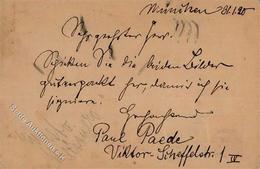 München 31.1.20
Sehr geehrter Herr.
Schicken Sie die beiden Bilder
gut verpackt her, damit ich sie
signiere.
Hochachtend
Paul Paede
Viktor-Scheffelstr. 1 IV